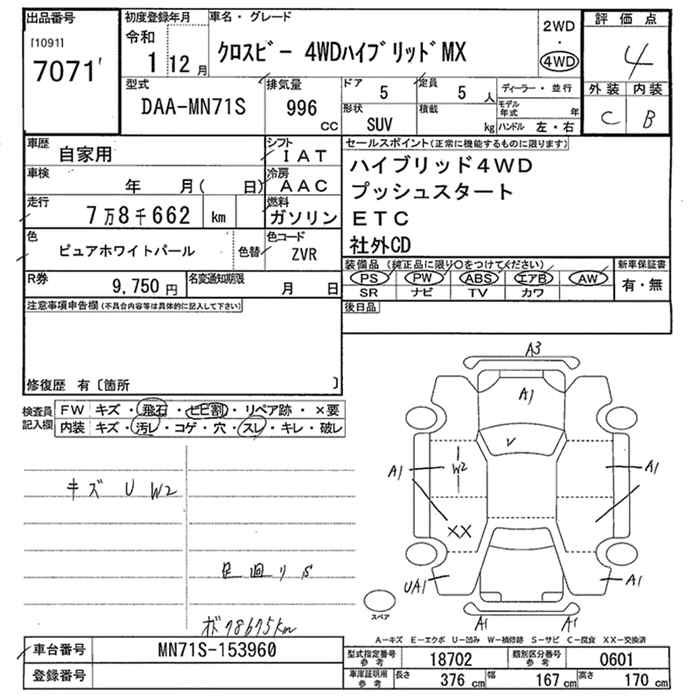 出品番号
[1091]
7071
初度登録年月
令和
1 12月
車名・グレード
クロスビー 4WDハイブリッドMX
2WD
・
4WD
評価点
4
外装 内装
C B
型式
DAA-MN71S
排気量
996 cc
ドア
5
定員
5 人
形状
SUV
積載
kg
ディーラー・並行
モデル年式 年
ハンドル 左・右
車歴
自家用
シフト
IAT
車検
年 月( 日)
冷房
AAC
走行
7万8千662 km
燃料
ガソリン
色
ピュアホワイトパール
色替
色コード
ZVR
R券
9,750 円
名変通知期限
月 日
セールスポイント(正常に機能するものに限ります)
ハイブリッド4WD
プッシュスタート
ETC
社外CD
装備品 (純正品に限り○をつけてください)
PS PW ABS エアB AW
SR ナビ TV カワ
新車保証書
有・無
後日品
注意事項申告欄(不具合内容等は具体的に記入して下さい)
修復歴 有〔箇所 〕
検査員記入欄
FW キズ・飛石・ヒビ割・リペア跡・×要
内装 キズ・汚レ・コゲ・穴・スレ・キレ・破レ
キズ U W2
足廻りS
ボ78675km
A3
A1
V
A1
W2
A1
XX
UA1
A1
A1
A1
スペア
A-キズ E-エクボ U-凹み W-補修跡 S-サビ C-腐食 XX-交換済
車台番号
MN71S-153960
登録番号
型式指定番号 参考
18702
類別区分番号 参考
0601
車庫証明用 参考
長さ 376 cm
幅 167 cm
高さ 170 cm